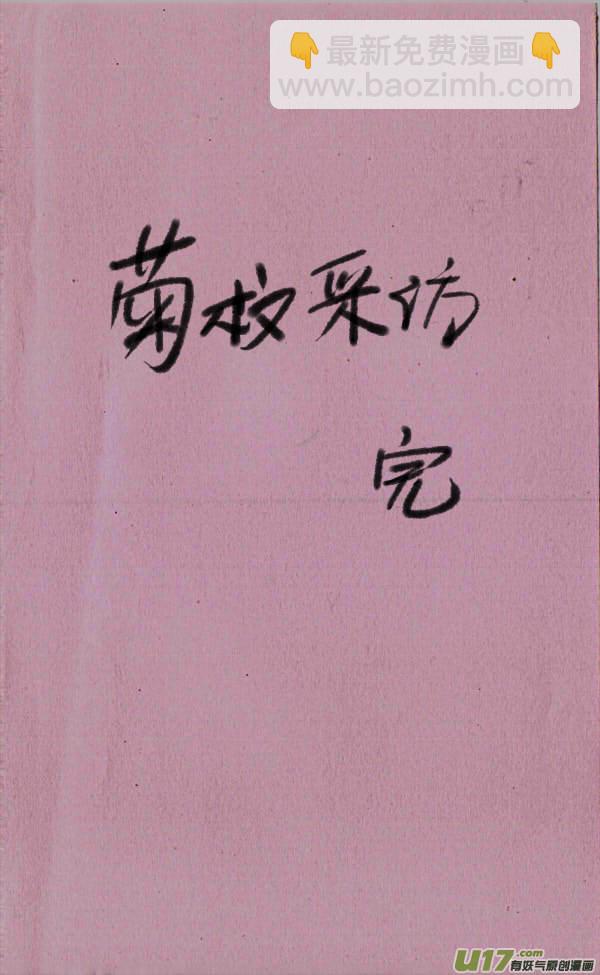 👇最新免费漫画👇
www.baozimh.com
菊枝采仿
完
U17.com
有妖气原创漫画